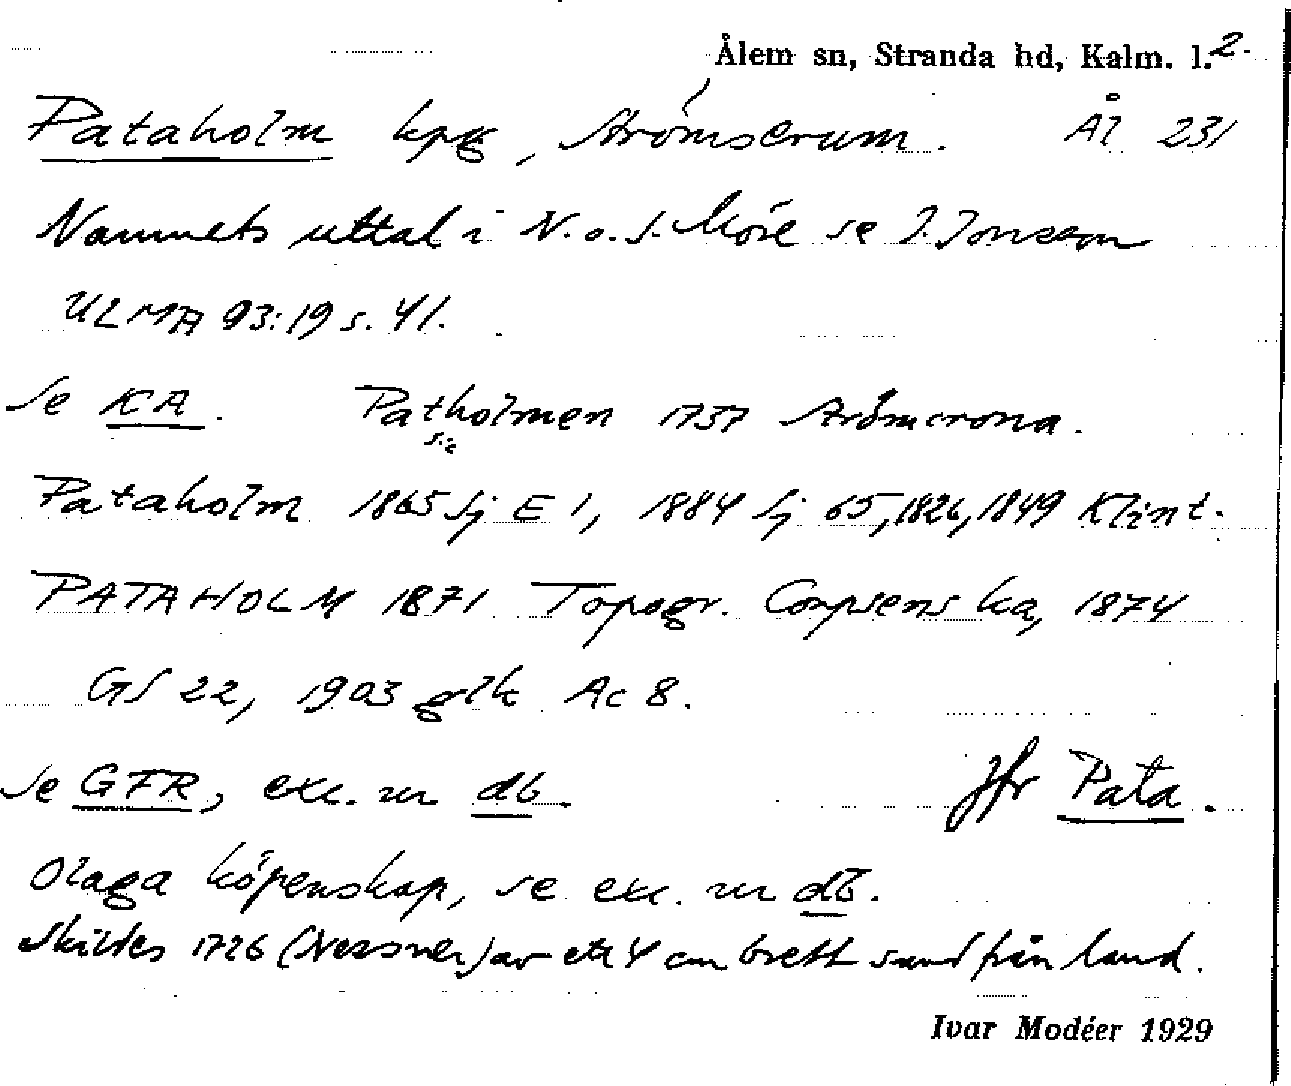 Ålem sn, Stranda hd, Kalm. l. 2.
Pataholm kpg, Strömserum. Ål 231
Namnets uttal i N. o. S. Möre se I. Jonsson
ULMA 93:19 s. 41.
Se KA. Patholmen 1737 Strömcrona.
sic
Pataholm 1865 Sj E 1, 1884 Sj 65, 1826, 1849 Klint.
PATAHOLM 1871 Topogr. Corpsens ka, 1874
GS 22, 1903 glk Ac 8.
Se GFR, exc. ur db. Jfr Pata.
Olaga köpenskap, se exc. ur db.
Skildes 1726 av ett 4 brett sund från land.
Ivar Modéer 1929